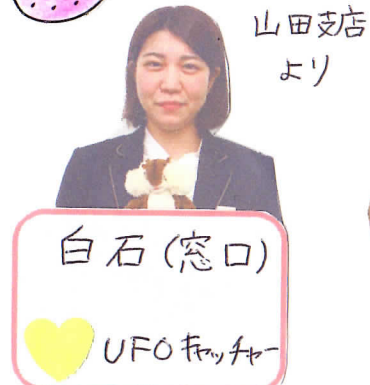 山田支店
より
白石(窓口)
UFOキャッチャー